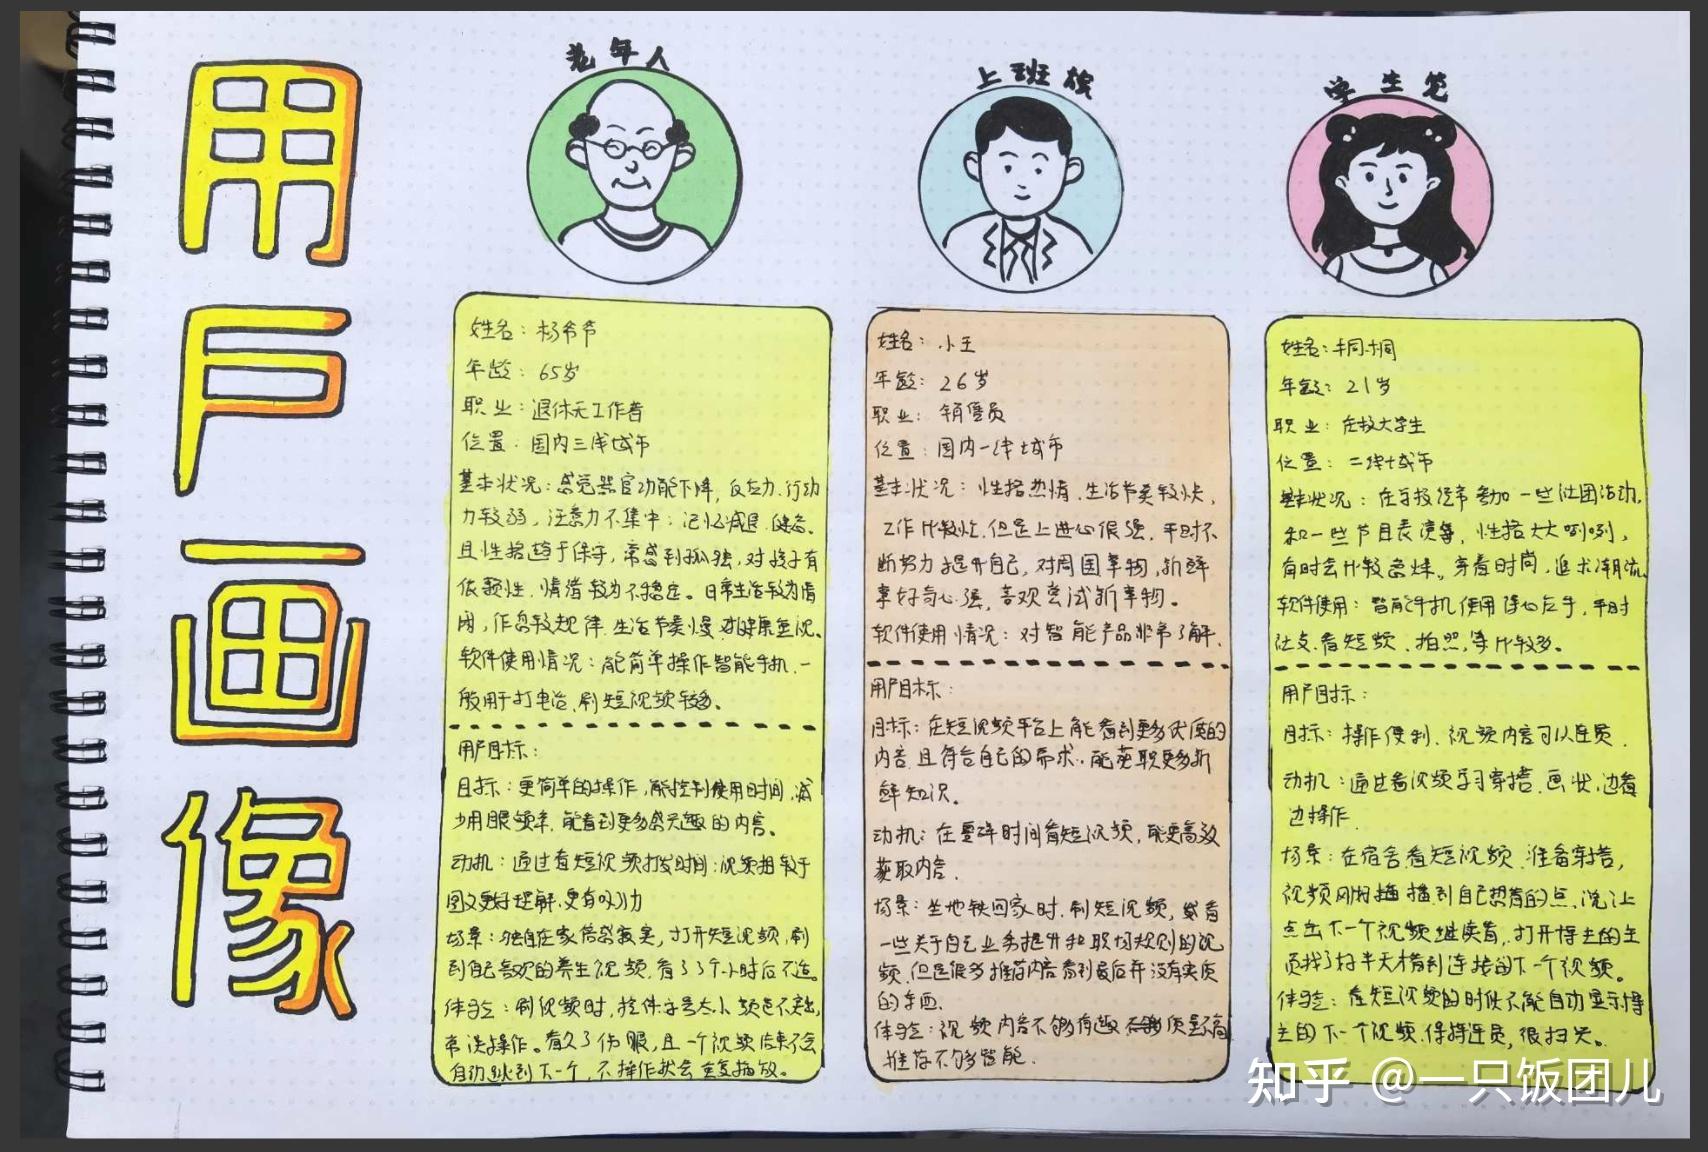 用户画像
老年人
姓名：杨爷爷
年龄：65岁
职业：退休无工作者
位置：国内三线城市
基本状况：感觉器官功能下降，反应力、行动
力较弱，注意力不集中；记忆减退、健忘。
且性格趋于保守，常感到孤独，对孩子有
依赖性，情绪较为不稳定。日常生活较为清
闲，作息较规律，生活节奏慢，对健康重视。
软件使用情况：能简单操作智能手机，一
般用于打电话、刷短视频较多。
用户目标：
目标：更简单的操作，能控制使用时间，减
少用眼频率，能看到更多感兴趣的内容。
动机：通过看短视频打发时间；视频相较于
图文更好理解，更有吸引力
场景：独自在家倍感寂寞，打开短视频，刷
到自己喜欢的养生视频，看了3个小时后不适。
体验：刷视频时，控件字号太小，颜色不突出，
常误操作。看久了伤眼，且一个视频结束不会
自动跳到下一个，不操作就会重复播放。
上班族
姓名：小王
年龄：26岁
职业：销售员
位置：国内一线城市
基本状况：性格热情，生活节奏较快，
工作比较忙，但是上进心很强，平时不
断努力提升自己，对周围事物，新鲜
事好奇心强，喜欢尝试新事物。
软件使用情况：对智能产品非常了解.
用户目标：
目标：在短视频平台上能看到更多优质的
内容，且符合自己的需求，能获取更多新
鲜知识。
动机：在零碎时间看短视频，能更高效
获取内容.
场景：坐地铁回家时，刷短视频，或看
一些关于自己业务提升和职场规则的视
频，但是很多推荐内容看到最后并没有实质
的东西.
体验：视频内容不够有趣，质量不高
推荐不够智能.
学生党
姓名：桐桐
年龄：21岁
职业：在校大学生
位置：二线城市
基本状况：在学校经常参加一些社团活动，
和一些节目表演等，性格大大咧咧，
有时会比较急燥。穿着时尚，追求潮流.
软件使用：智能手机使用得心应手，平时
社交、看短视频、拍照，等比较多。
用户目标：
目标：操作便利，视频内容可以连贯.
动机：通过看视频学习穿搭、画妆，边看
边操作.
场景：在宿舍看短视频，准备穿搭，
视频刚刚播到自己想看的点，说让
点击下一个视频继续看，打开博主的主
页找了好半天才看到连接的下一个视频。
体验：看短视频的时候不能自动显示博
主的下一个视频，保持连贯，很扫兴。
知乎 @一只饭团儿